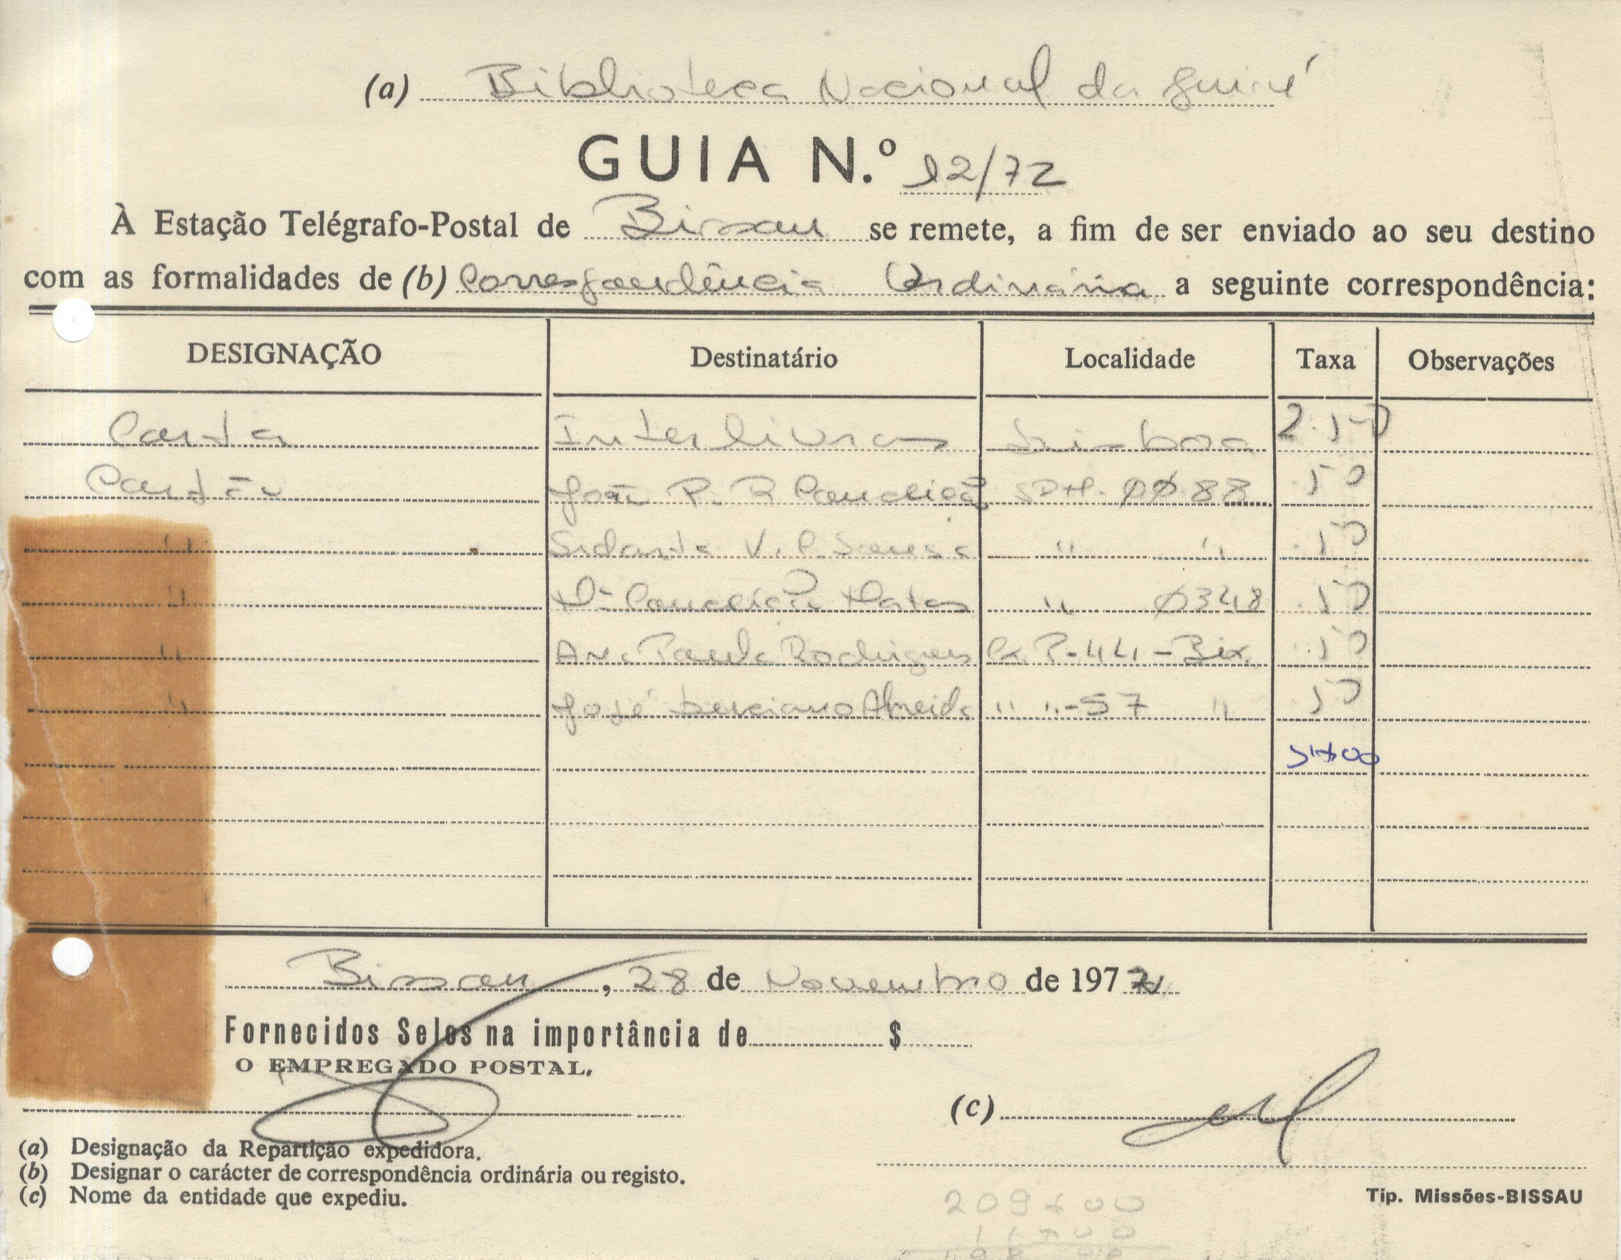 (a) Biblioteca Nacional da Guiné
GUIA N.º 12/72
À Estação Telégrafo-Postal de Bissau se remete, a fim de ser enviado ao seu destino
com as formalidades de (b) Correspondência Ordinária a seguinte correspondência:
DESIGNAÇÃO Destinatário Localidade Taxa Observações
Carta Interlivros Lisboa 2.50
Cartão João P. R. Conceição SPM. 0088 .50
" V. P. Sousa " " .50
" Mª Conceição Matos " 0348 .50
" Ana Paula Rodrigues Cx. P-441-Bix. .50
" José Almeida " "-57 " .50
Bissau, 28 de Novembro de 197
Fornecidos Selos na importância de $
O EMPREGADO POSTAL,
(c)
(a) Designação da Repartição expedidora.
(b) Designar o carácter de correspondência ordinária ou registo.
(c) Nome da entidade que expediu.
Tip. Missões-BISSAU